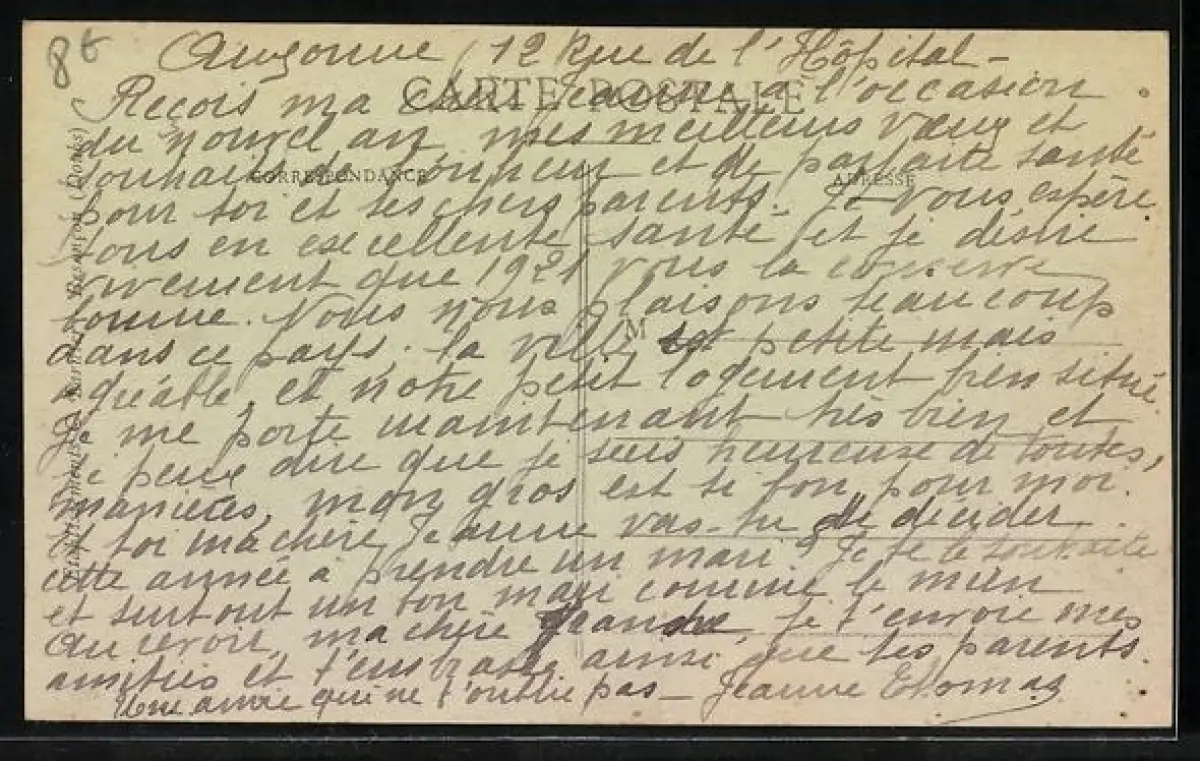 8t
Auxonne, 12 Rue de l'Hôpital -
CARTE POSTALE
Reçois ma cher Jeanne à l'occasion
du nouvel an mes meilleurs vœux et
souhaits de bonheur et de parfaite santé
CORRESPONDANCE
ADRESSE
pour toi et tes chers parents. Je vous espère
tous en excellente santé et je désire
vivement que 1921 vous la conserve
bonne. Nous nous plaisons beaucoup
dans ce pays. la ville est petite mais
M
agréable, et notre petit logement bien situé
Je me porte maintenant très bien et
peux dire que je suis heureuse de toutes,
manières, mon gros est si bon pour moi.
Et toi ma chère Jeanne vas-tu te décider
cette année à prendre un mari? Je te le souhaite
et surtout un bon mari comme le mien
Au revoir, ma chère Jeanne, je t'envoie mes
amitiés et t'embrasse ainsi que tes parents.
Une amie qui ne t'oublie pas - Jeanne
Besançon (Doubs)